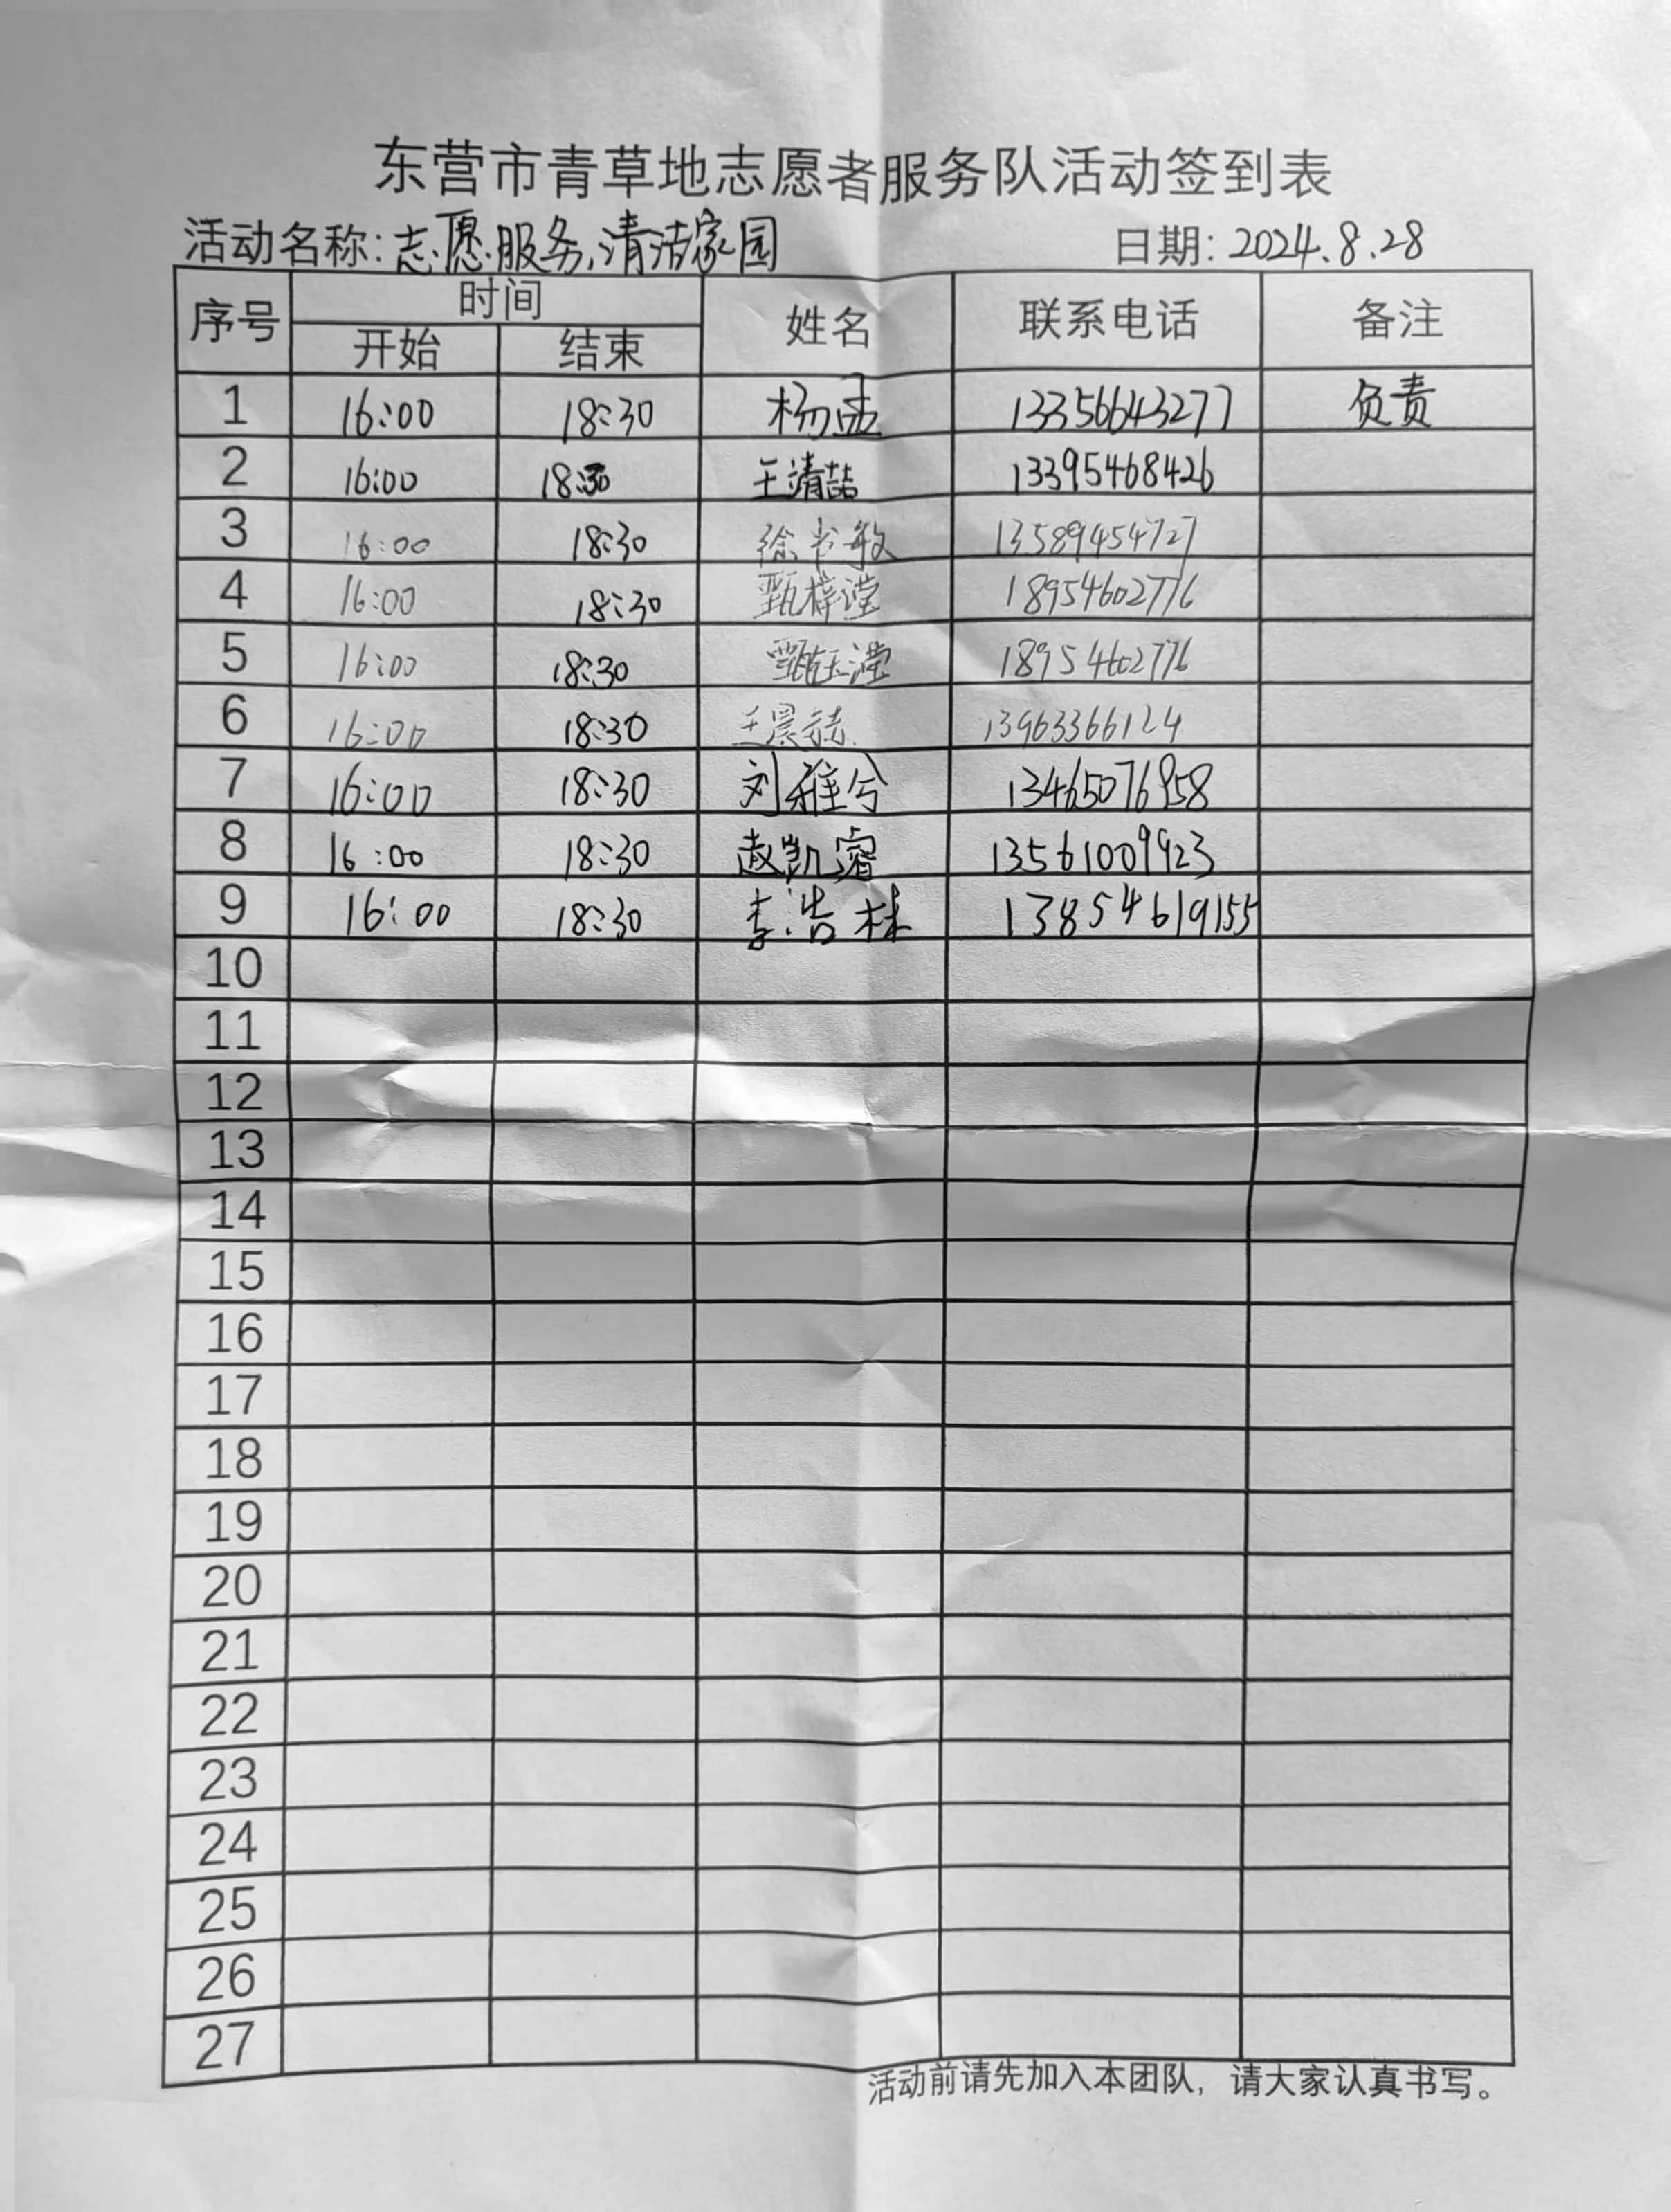 东营市青草地志愿者服务队活动签到表
活动名称:志愿服务,清洁家园 日期: 2024.8.28
序号 时间 姓名 联系电话 备注
开始 结束
1 16:00 18:30 杨孟 13356643277 负责
2 16:00 18:30 王清喆 13395468426
3 16:00 18:30 徐书敏 13589454727
4 16:00 18:30 甄梓滢 18954602776
5 16:00 18:30 甄钰滢 18954602776
6 16:00 18:30 王晨 13963366124
7 16:00 18:30 刘雅兮 13465076958
8 16:00 18:30 赵凯睿 13561009923
9 16:00 18:30 李浩林 13854619155
10
11
12
13
14
15
16
17
18
19
20
21
22
23
24
25
26
27
活动前请先加入本团队，请大家认真书写。